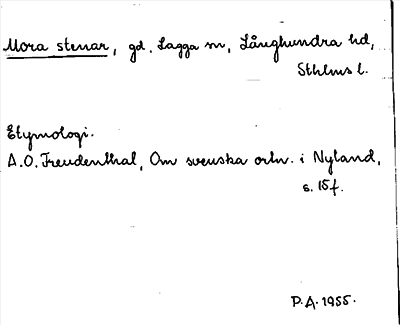 Mora stenar, gd. Lagga sn, Långhundra hd,
Sthlms l.
Etymologi.
A.O. Freudenthal, Om svenska ortn. i Nyland,
s. 15f.
P.A. 1955.